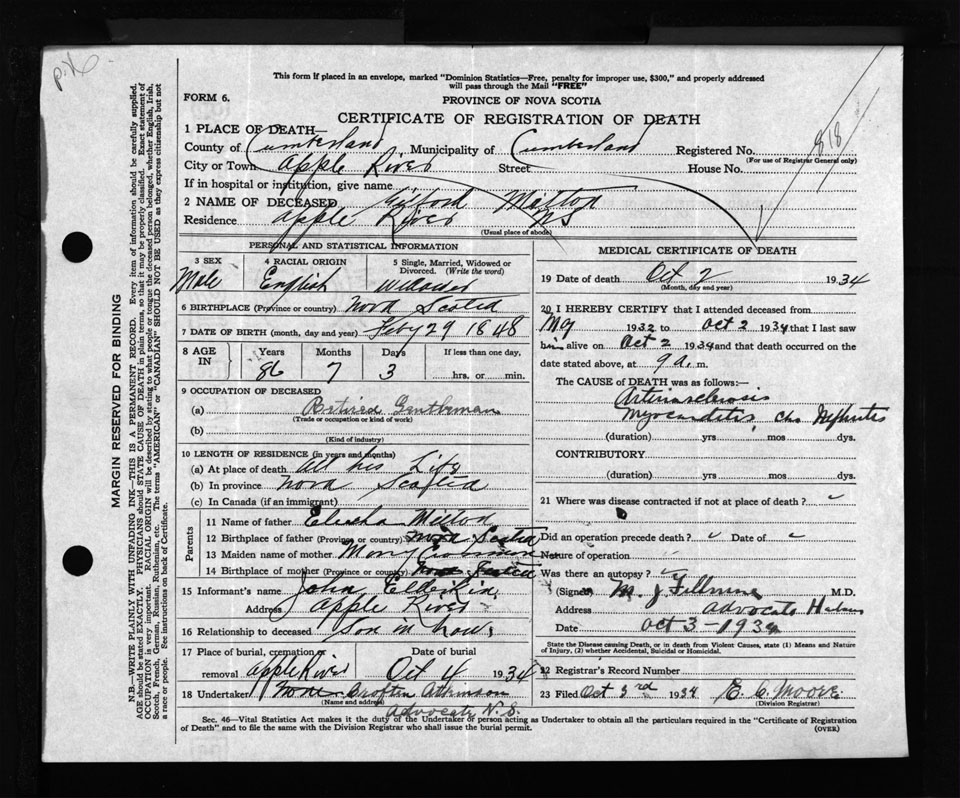 p.k.
This form if placed in an envelope, marked "Dominion Statistics—Free, penalty for improper use, $300," and properly addressed
will pass through the Mail "FREE"
FORM 6.
PROVINCE OF NOVA SCOTIA
CERTIFICATE OF REGISTRATION OF DEATH
818
MARGIN RESERVED FOR BINDING
N.B.—WRITE PLAINLY WITH UNFADING INK—THIS IS A PERMANENT RECORD. Every item of information should be carefully supplied.
AGE should be stated EXACTLY. PHYSICIANS should STATE CAUSE OF DEATH in plain terms, so that it may be properly classified. Exact statement of
OCCUPATION is very important. RACIAL ORIGIN will be described by stating to what people or tongue the deceased person belonged, whether English, Irish,
Scotch, French, German, Russian, Ruthenian, etc. The terms "AMERICAN" or "CANADIAN" SHOULD NOT BE USED as they express citizenship but not
a race or people. See instructions on back of Certificate.
1 PLACE OF DEATH—
County of Cumberland Municipality of Cumberland Registered No.
(For use of Registrar General only)
City or Town Apple River Street House No.
If in hospital or institution, give name
2 NAME OF DECEASED
Residence Apple River NS
(Usual place of abode)
PERSONAL AND STATISTICAL INFORMATION
3 SEX 4 RACIAL ORIGIN 5 Single, Married, Widowed or
Divorced. (Write the word)
Male English Widower
6 BIRTHPLACE (Province or country) Nova Scotia
7 DATE OF BIRTH (month, day and year) Feby 29 1848
8 AGE IN Years Months Days If less than one day,
86 7 3 hrs. or min.
9 OCCUPATION OF DECEASED
(a) Retired Gentleman
(Trade or occupation or kind of work)
(b)
(Kind of industry)
10 LENGTH OF RESIDENCE (in years and months)
(a) At place of death All his Life
(b) In province Nova Scotia
(c) In Canada (if an immigrant)
Parents
11 Name of father
12 Birthplace of father (Province or country) Nova Scotia
13 Maiden name of mother Mary
14 Birthplace of mother (Province or country) Nova Scotia
15 Informant's name John Elderkin
Address Apple River
16 Relationship to deceased Son in Law
17 Place of burial, cremation or Date of burial
removal Apple River Oct 4 1934
18 Undertaker None Croften Atkinson
(Name and address)
Advocate N.S.
MEDICAL CERTIFICATE OF DEATH
19 Date of death Oct 2 1934
(Month, day and year)
20 I HEREBY CERTIFY that I attended deceased from
May 1932 to Oct 2 1934 that I last saw
him alive on Oct 2 1934 and that death occurred on the
date stated above, at 9 a. m.
The CAUSE OF DEATH was as follows:—
Arteriosclerosis
Myocarditis, Chr Nephritis
(duration) yrs mos dys.
CONTRIBUTORY
(duration) yrs. mos. dys.
21 Where was disease contracted if not at place of death?
Did an operation precede death? Date of
Nature of operation
Was there an autopsy?
(Signed) M. J Fillmore M.D.
Address Advocate Harbour
Date Oct 3-1934
State the Disease causing Death, or in death from Violent Causes, state (1) Means and Nature
of Injury, (2) whether Accidental, Suicidal or Homicidal.
22 Registrar's Record Number
23 Filed Oct 3rd 1934 E. C. Moore
(Division Registrar)
Sec. 46—Vital Statistics Act makes it the duty of the Undertaker or person acting as Undertaker to obtain all the particulars required in the "Certificate of Registration
of Death" and to file the same with the Division Registrar who shall issue the burial permit.
(OVER)